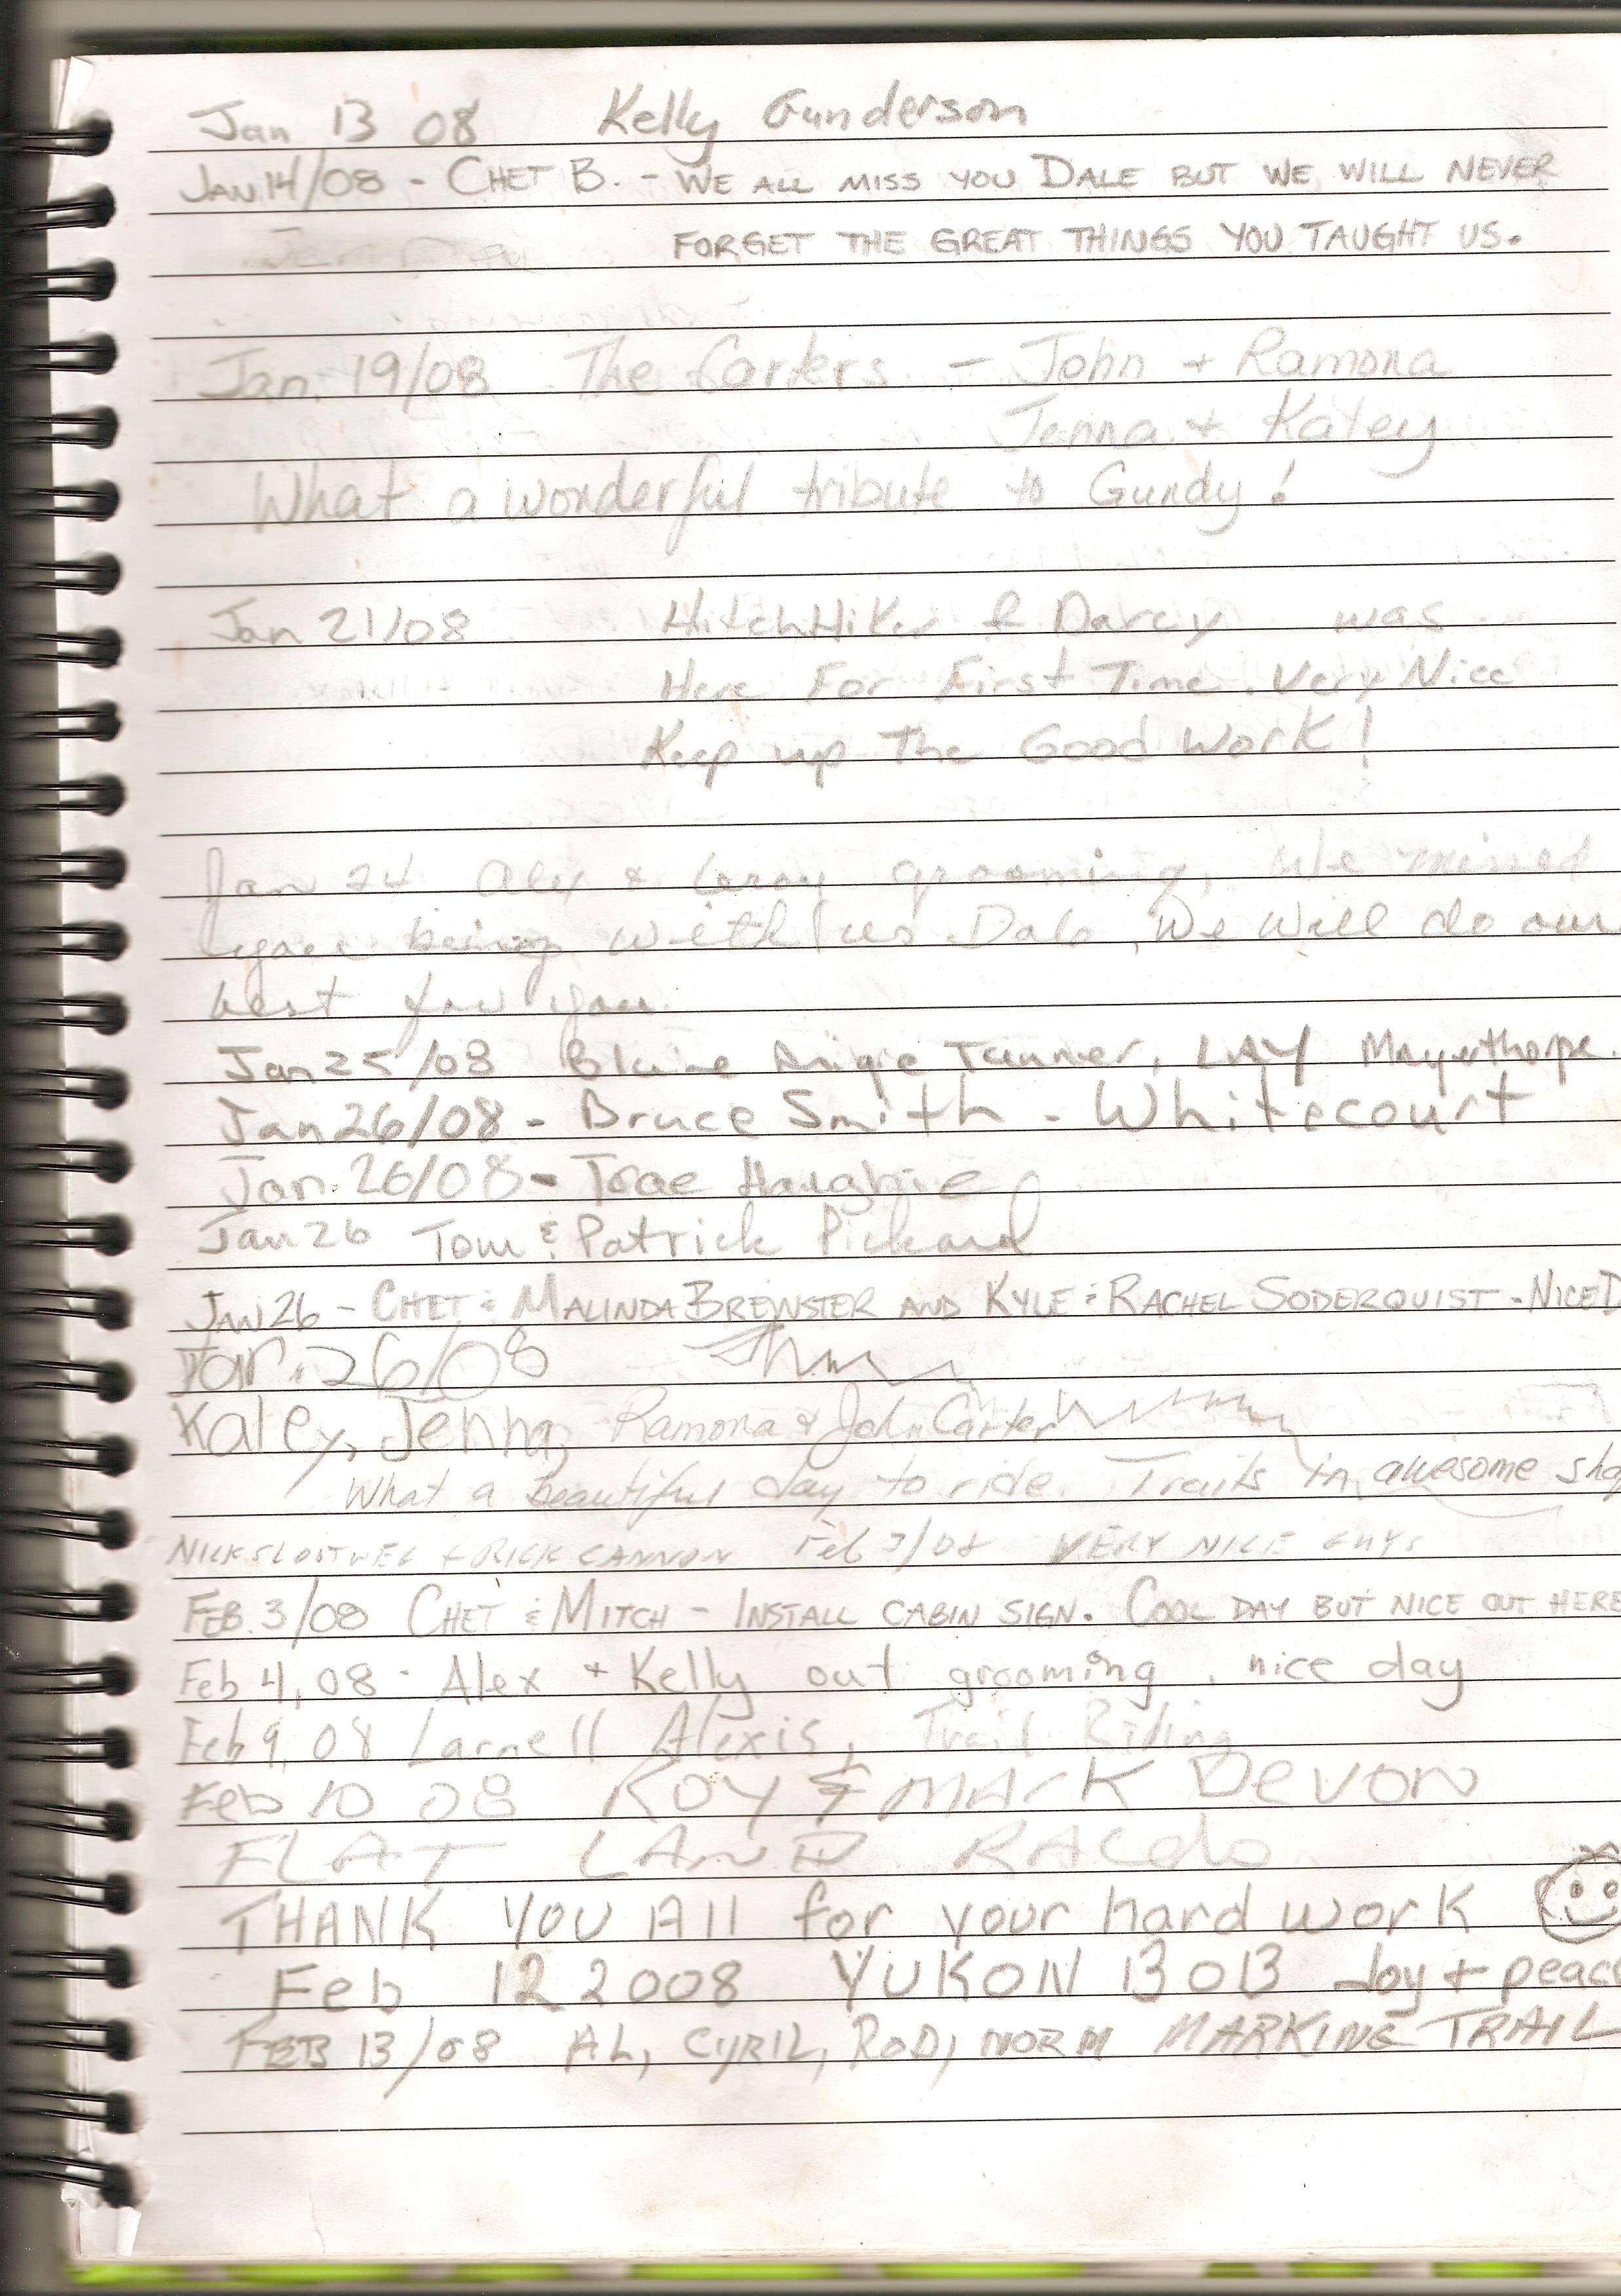 Jan 13 08 Kelly Gunderson
JAN 14/08 - CHET B. - WE ALL MISS YOU DALE BUT WE WILL NEVER
FORGET THE GREAT THINGS YOU TAUGHT US.
Jan. 19/08 The Carters - John + Ramona
Jenna + Kaley
What a wonderful tribute to Gundy!
Jan 21/08 HitchHiker & Darcy was
Here For First Time. Very Nice
Keep up The Good Work!
Jan 24 Alex & Leroy grooming, We missed
you being with us Dale, We Will do our
best for you.
Jan 25/08 Blaine Angie Tanner, LAY Mayerthorpe.
Jan 26/08 - Bruce Smith - Whitecourt
Jan. 26/08 - Trae
Jan 26 Tom & Patrick Pickard
JAN 26 - CHET & MALINDA BREWSTER AND KYLE & RACHEL SODERQUIST - NICE D
Jan. 26/08
Kaley, Jenna, Ramona & John Carter
What a beautiful day to ride. Trails in awesome sha
NICK + RICK CANNON Feb /08 VERY NICE GUYS
FEB. 3/08 CHET & MITCH - INSTALL CABIN SIGN. COOL DAY BUT NICE OUT HERE
Feb 4, 08 - Alex + Kelly out grooming. nice day
Feb 9, 08 Larnell Alexis, Trail Riding
Feb 10 08 ROY & MArK DeVON
FLAT LAND
THANK YOU All for your hard work
Feb 12 2008 YUKON 13 Joy + peace
FEB 13/08 AL, CYRIL, ROD, NORM MARKING TRAIL